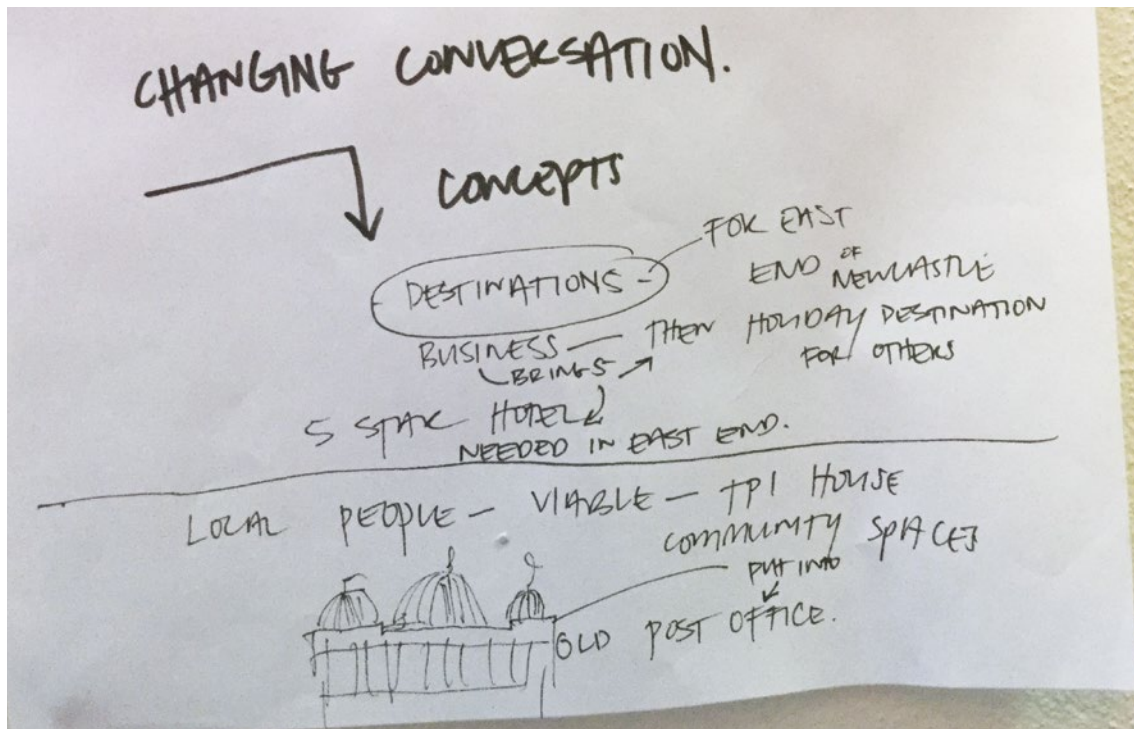 CHANGING CONVERSATION.
CONCEPTS
DESTINATIONS - FOR EAST
END OF NEWCASTLE
BUSINESS — THEN HOLIDAY DESTINATION
FOR OTHERS
BRINGS
5 STAR HOTEL
NEEDED IN EAST END.
LOCAL PEOPLE - VIABLE - TPI HOUSE
COMMUNITY SPACES
PUT INTO
OLD POST OFFICE.